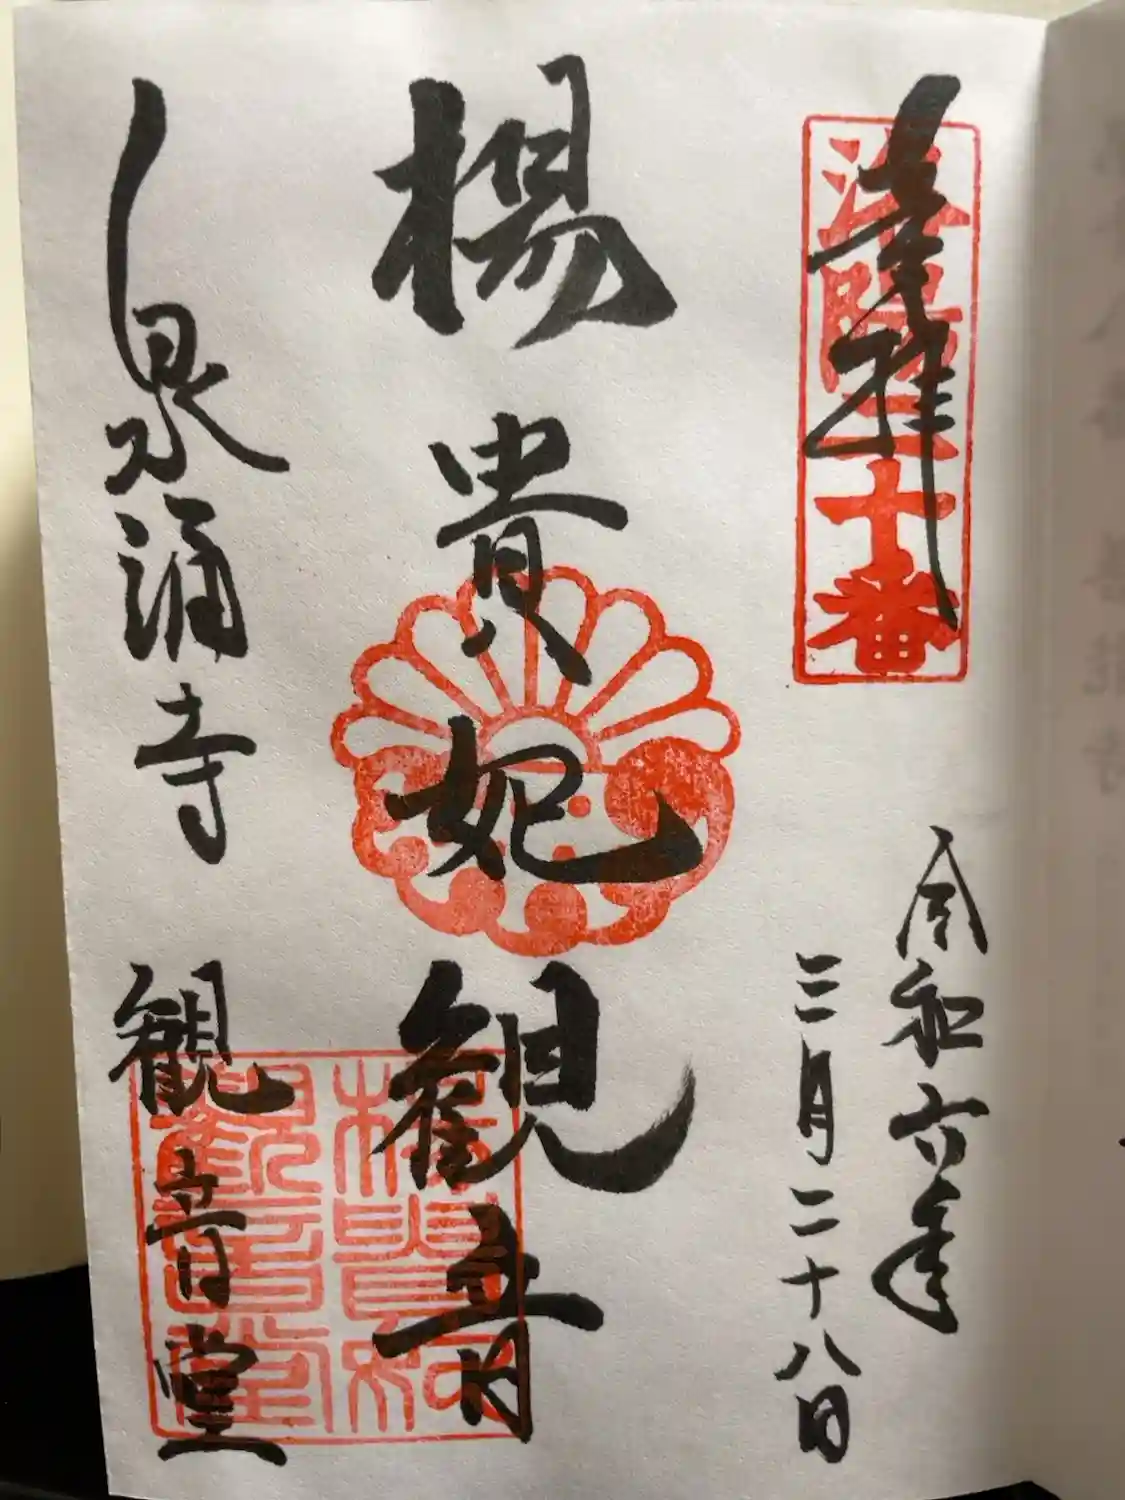 奉拝
洛陽二十番
令和六年
三月二十八日
楊貴妃観音
泉涌寺
観音堂
楊貴妃
観音堂